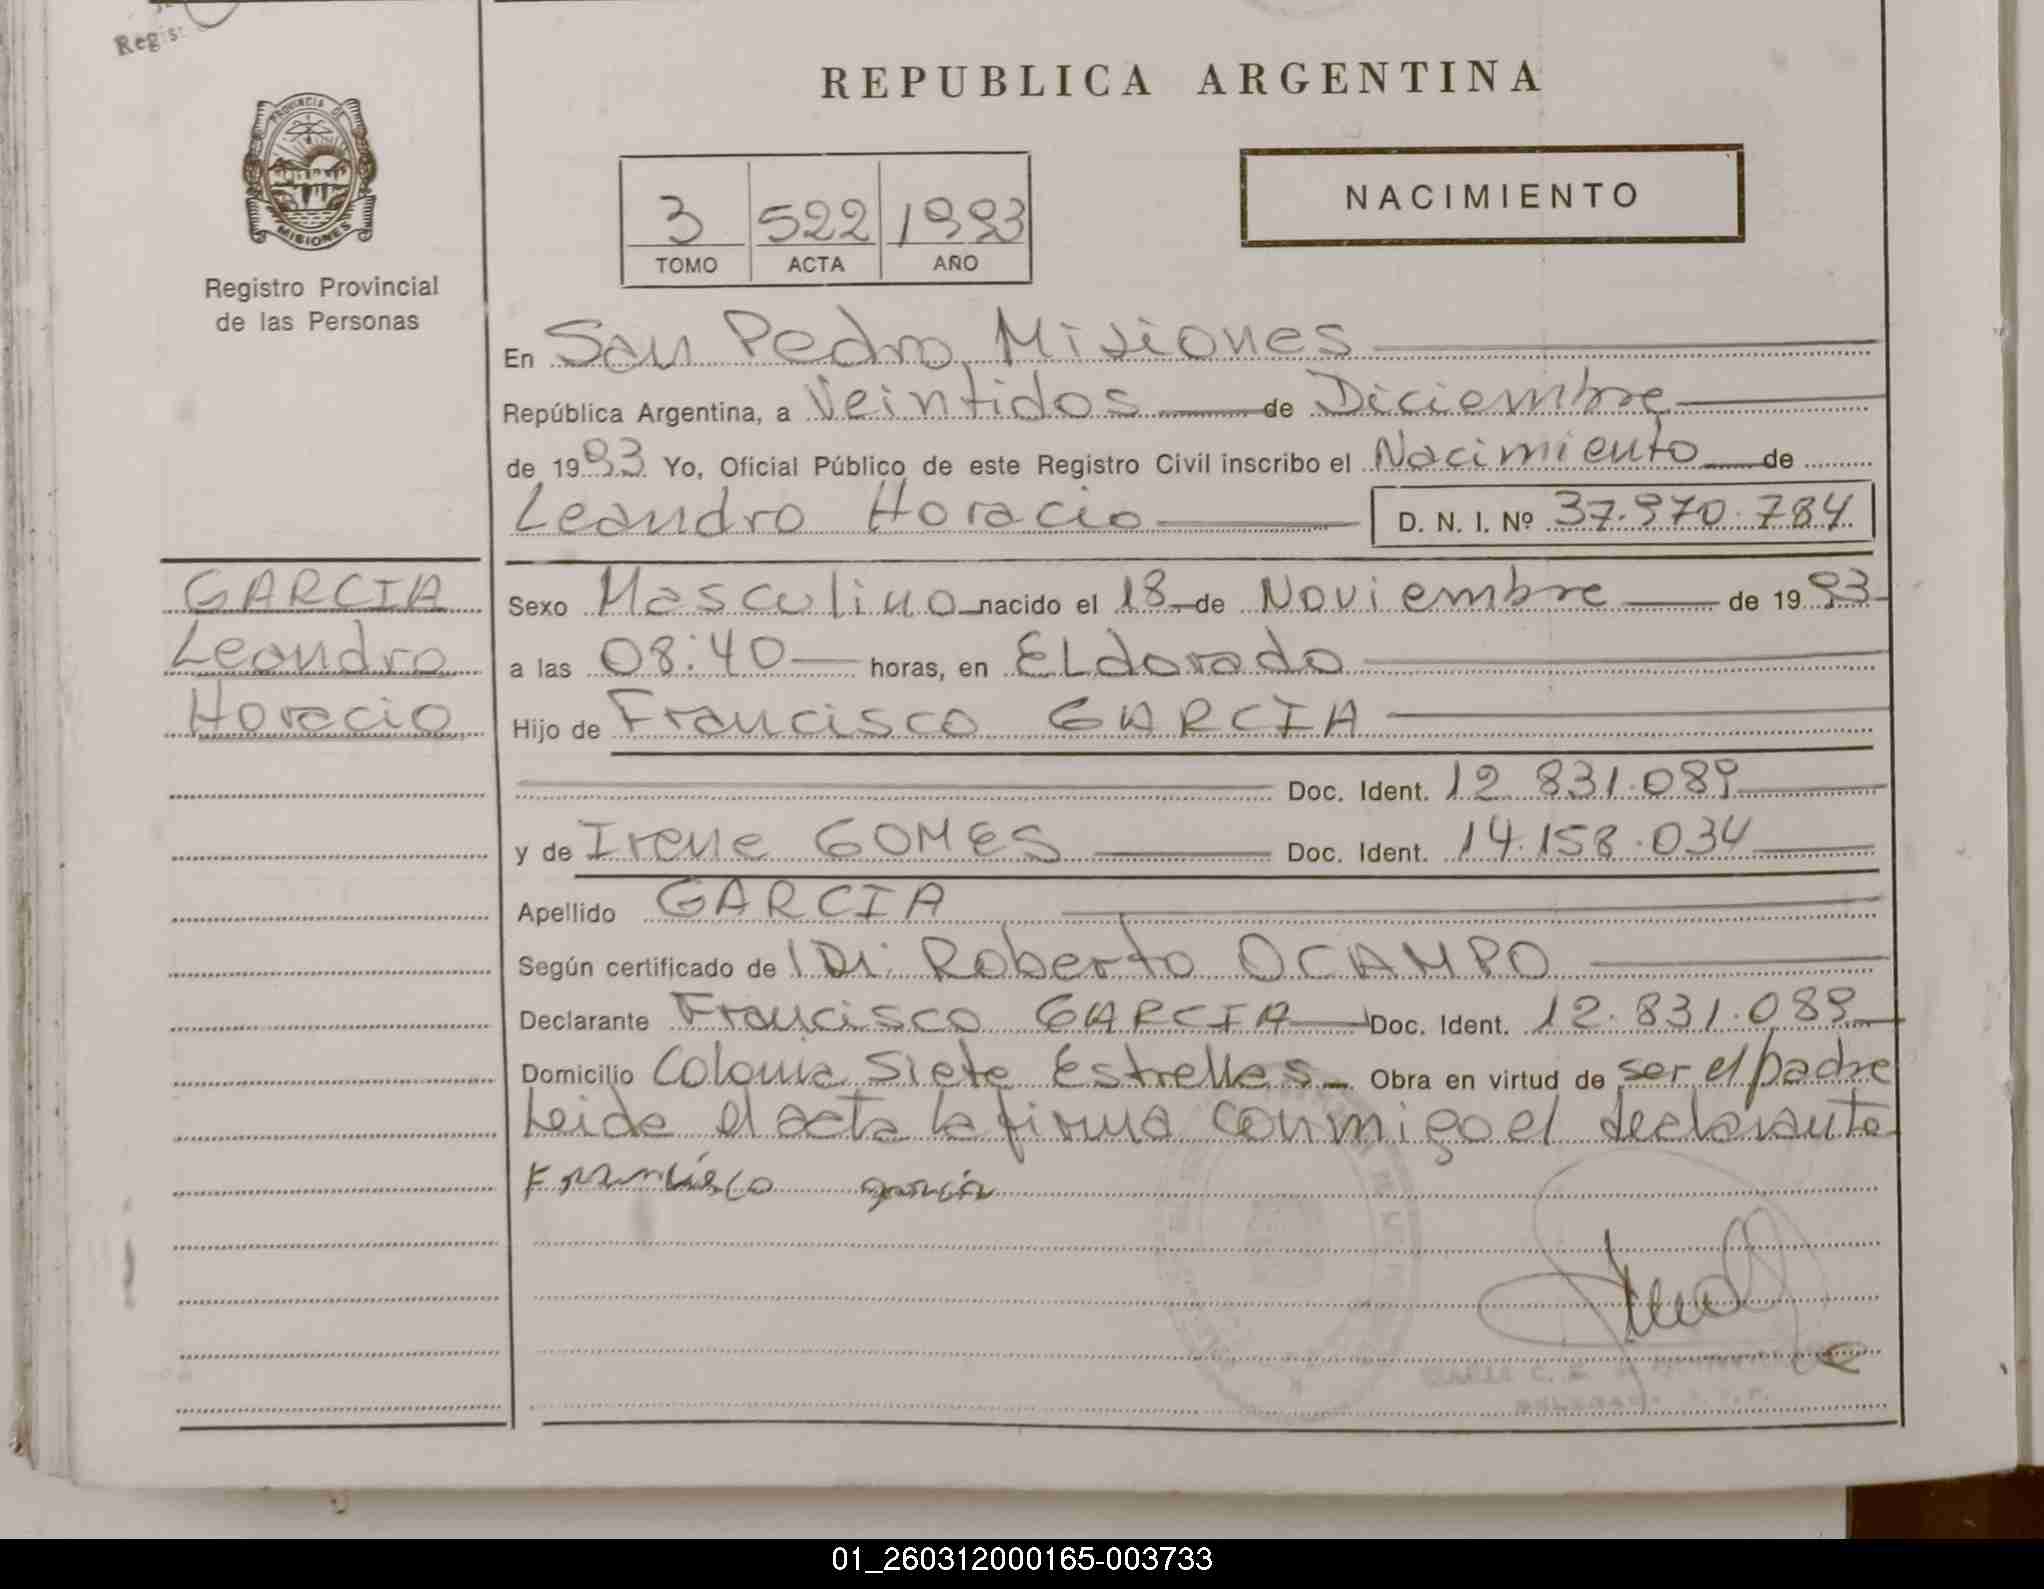 Regis
REPUBLICA ARGENTINA
PROVINCIA DE
MISIONES
NACIMIENTO
3 522 1993
TOMO ACTA AÑO
Registro Provincial
de las Personas
En San Pedro Misiones
República Argentina, a Veintidos de Diciembre
de 1993 Yo, Oficial Público de este Registro Civil inscribo el Nacimiento de
Leandro Horacio D. N. I. Nº 37.970.784
GARCIA
Leandro
Horacio
Sexo Masculino nacido el 18 de Noviembre de 1993
a las 08:40 horas, en ELdorado
Hijo de Francisco GARCIA
Doc. Ident. 12.831.089
y de Irene GOMES Doc. Ident. 14.158.034
Apellido GARCIA
Según certificado de Dr. Roberto OCAMPO
Declarante Francisco GARCIA Doc. Ident. 12.831.089
Domicilio Colonia Siete Estrelles Obra en virtud de ser el padre
Leida el acta la firma conmigo el declarante
Francisco garcia
01_260312000165-003733